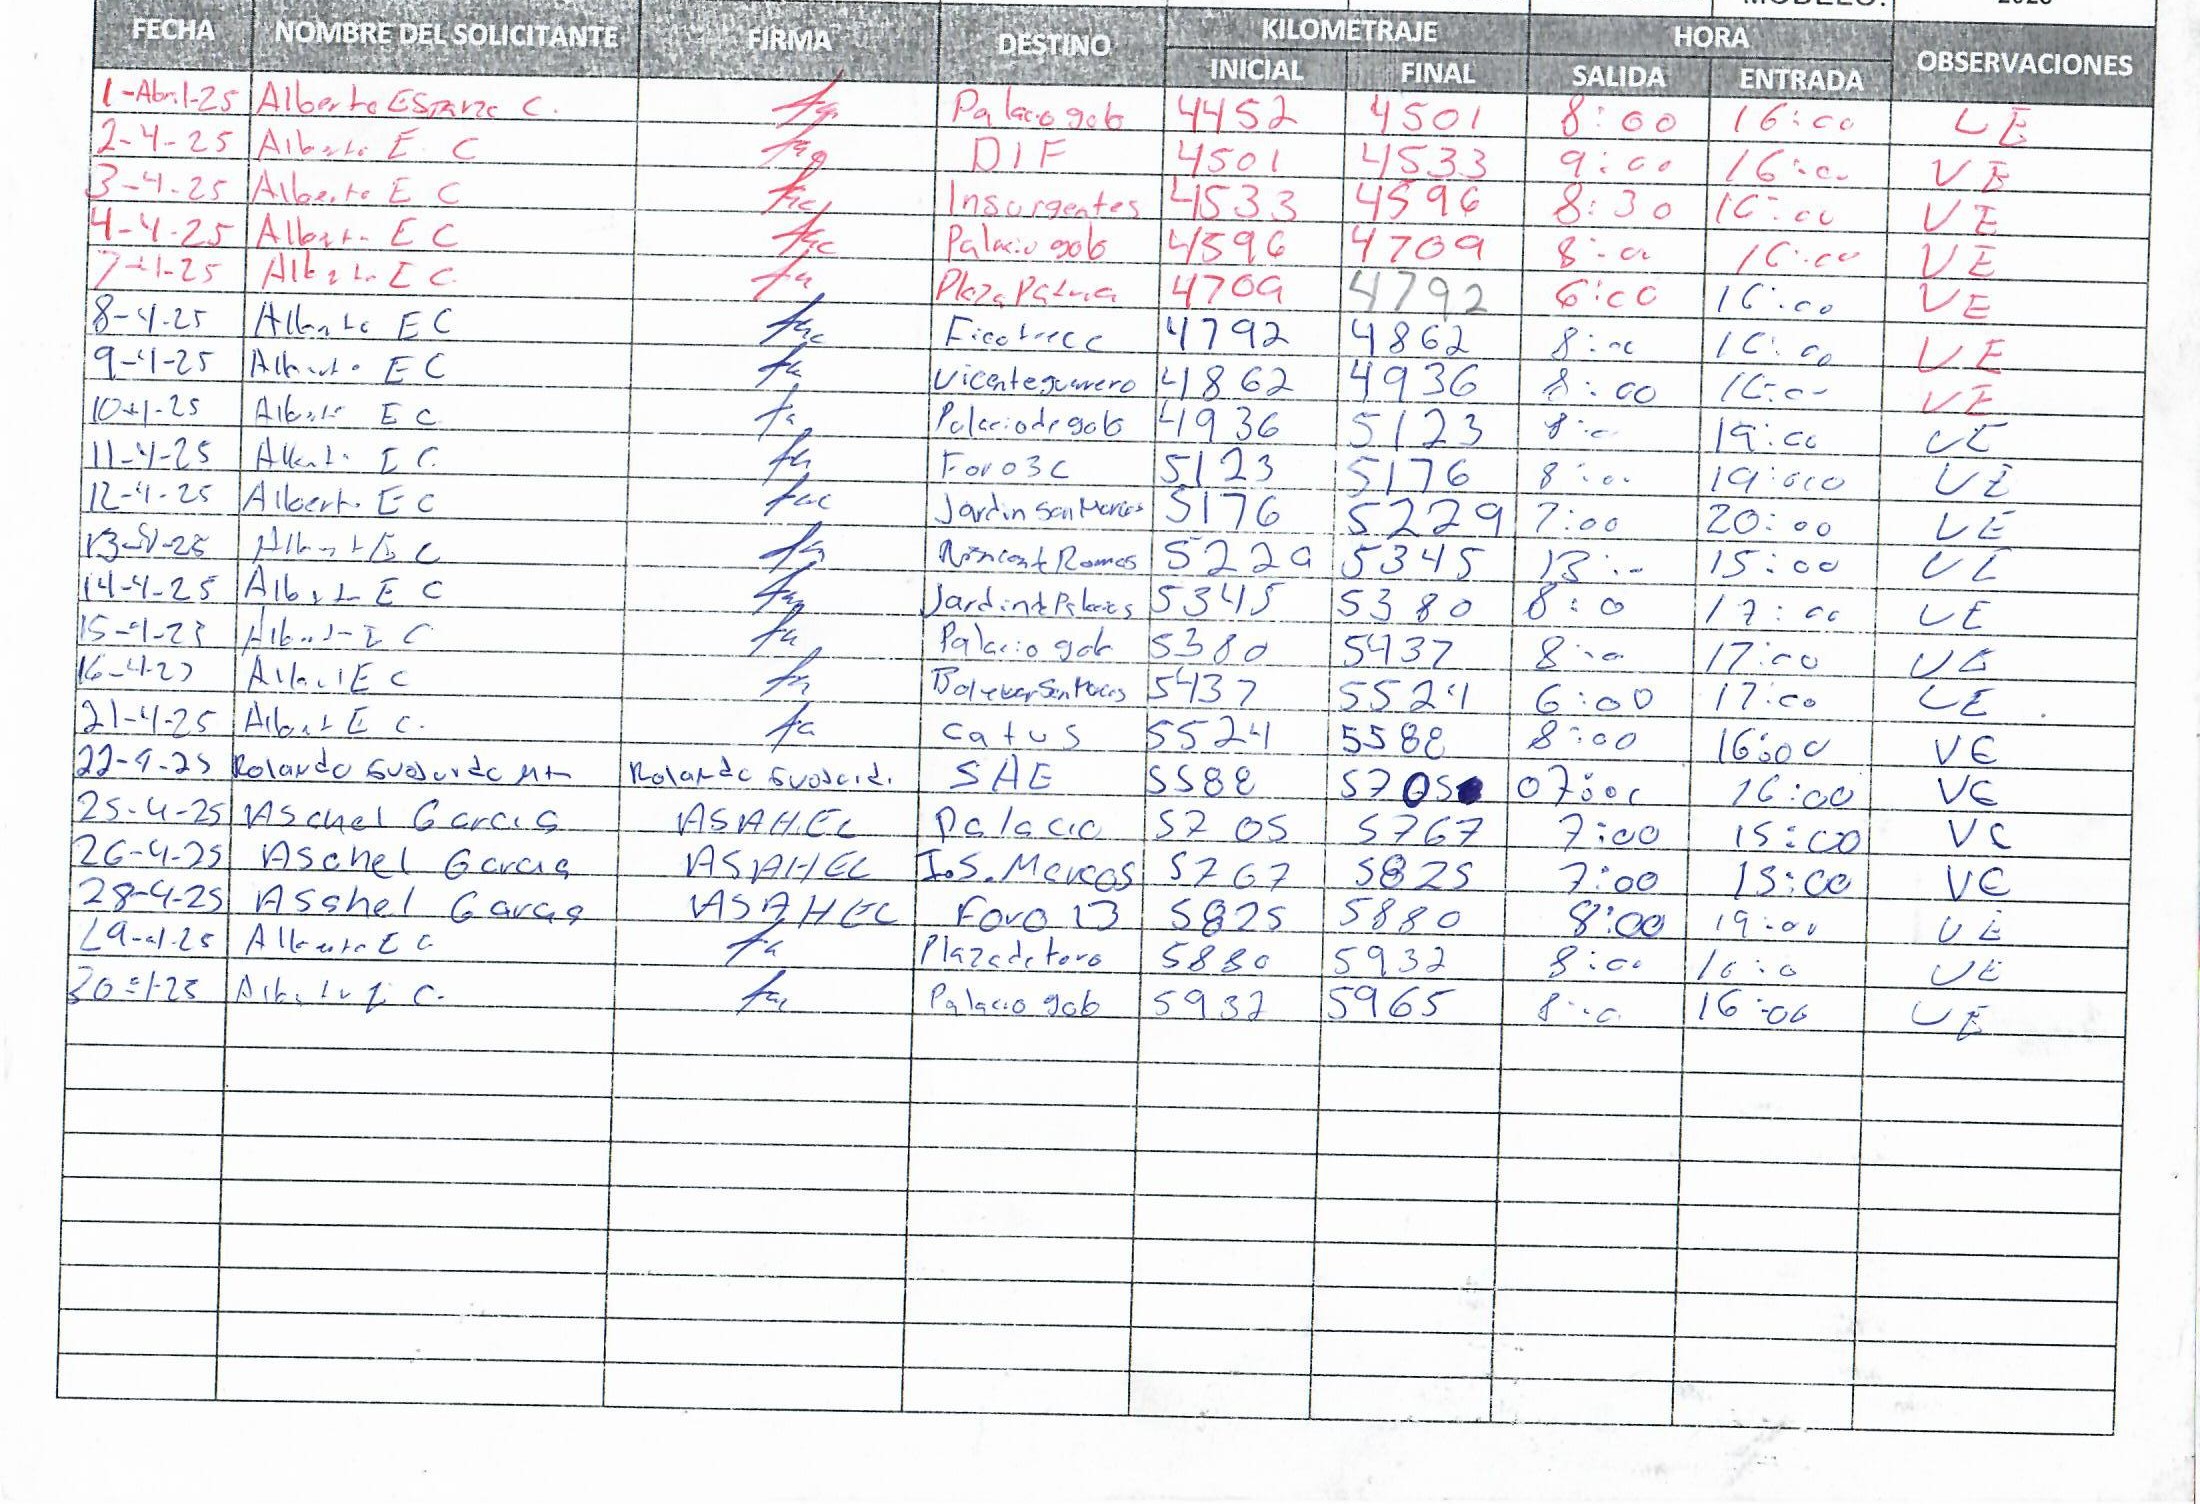 MODELO: 2020
FECHA NOMBRE DEL SOLICITANTE FIRMA DESTINO KILOMETRAJE HORA OBSERVACIONES
INICIAL FINAL SALIDA ENTRADA
1-Abril-25 Alberto Esparza C. Palacio gob 4452 4501 8:00 16:00 VE
2-4-25 Alberto E C DIF 4501 4533 9:00 16:00 VE
3-4-25 Alberto E C Insurgentes 4533 4596 8:30 16:00 VE
4-4-25 Alberto E C Palacio gob 4596 4709 8:00 16:00 VE
7-4-25 Alberto E C Plaza Patria 4709 4792 6:00 16:00 VE
8-4-25 Alberto E C 4792 4862 8:00 16:00 VE
9-4-25 Alberto E C Vicente guerrero 4862 4936 8:00 16:00 VE
10-4-25 Alberto E C Palacio de gob 4936 5123 8:00 19:00 VE
11-4-25 Alberto E C Foro 3C 5123 5176 8:00 19:00 VE
12-4-25 Alberto E C Jardin San Marcos 5176 5229 7:00 20:00 VE
13-4-25 Alberto E C Rincon de Romos 5229 5345 13:00 15:00 VE
14-4-25 Alberto E C Jardin de Palacios 5345 5380 8:0 17:00 VE
15-4-25 Alberto E C Palacio gob 5380 5437 8:00 17:00 VE
16-4-25 Albert E C San Marcos 5437 5524 6:00 17:00 VE
21-4-25 Albert E C. Catus 5524 5588 8:00 16:00 VE
22-4-25 Rolando Rolando SAE 5588 5705 07:00 16:00 VE
25-4-25 Asahel Garcia ASAHEL Palacio 5705 5767 7:00 15:00 VE
26-4-25 Asahel Garcia ASAHEL I.S. Marcos 5767 5825 7:00 15:00 VE
28-4-25 Asahel Garcia ASAHEL Foro 13 5825 5880 8:00 19:00 VE
29-4-25 Alberto E C Plaza de toro 5880 5932 8:00 16:0 VE
30-4-25 Alberto E C. Palacio gob 5932 5965 8:0 16:00 VE